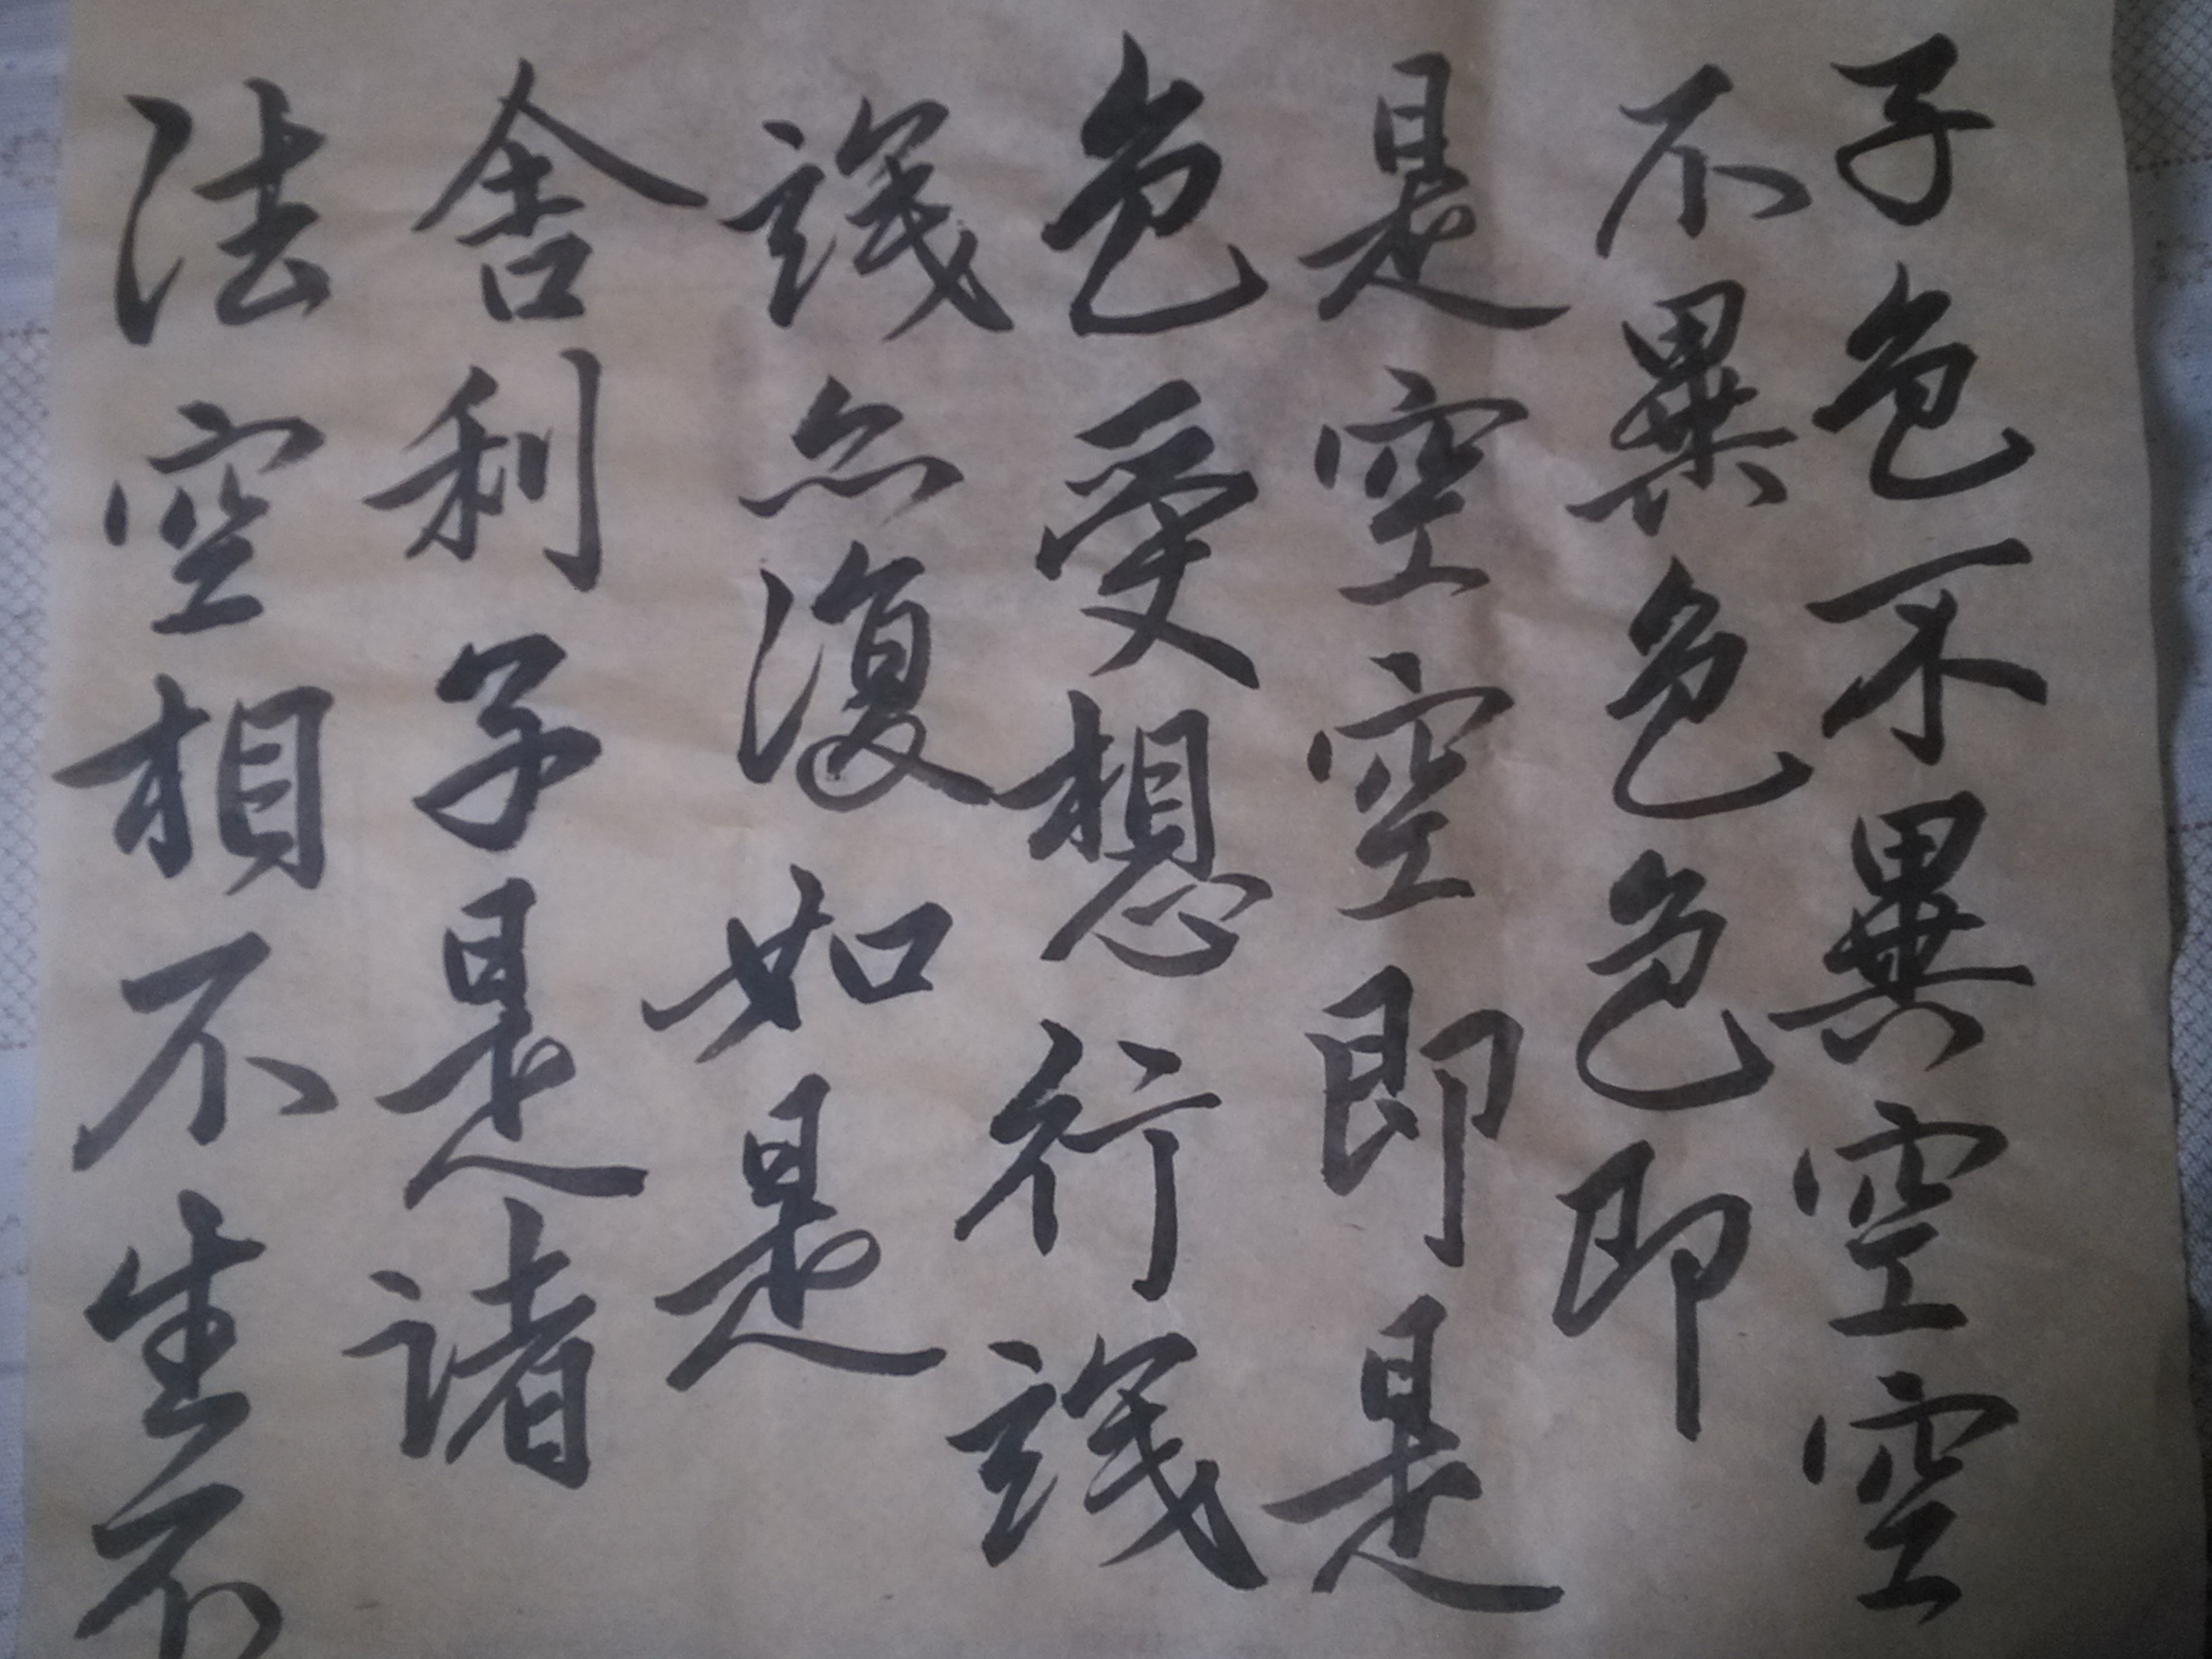 子色不異空空
不異色色即
是空空即是
色受想行識
識亦復如是
舍利子是諸
法空相不生不